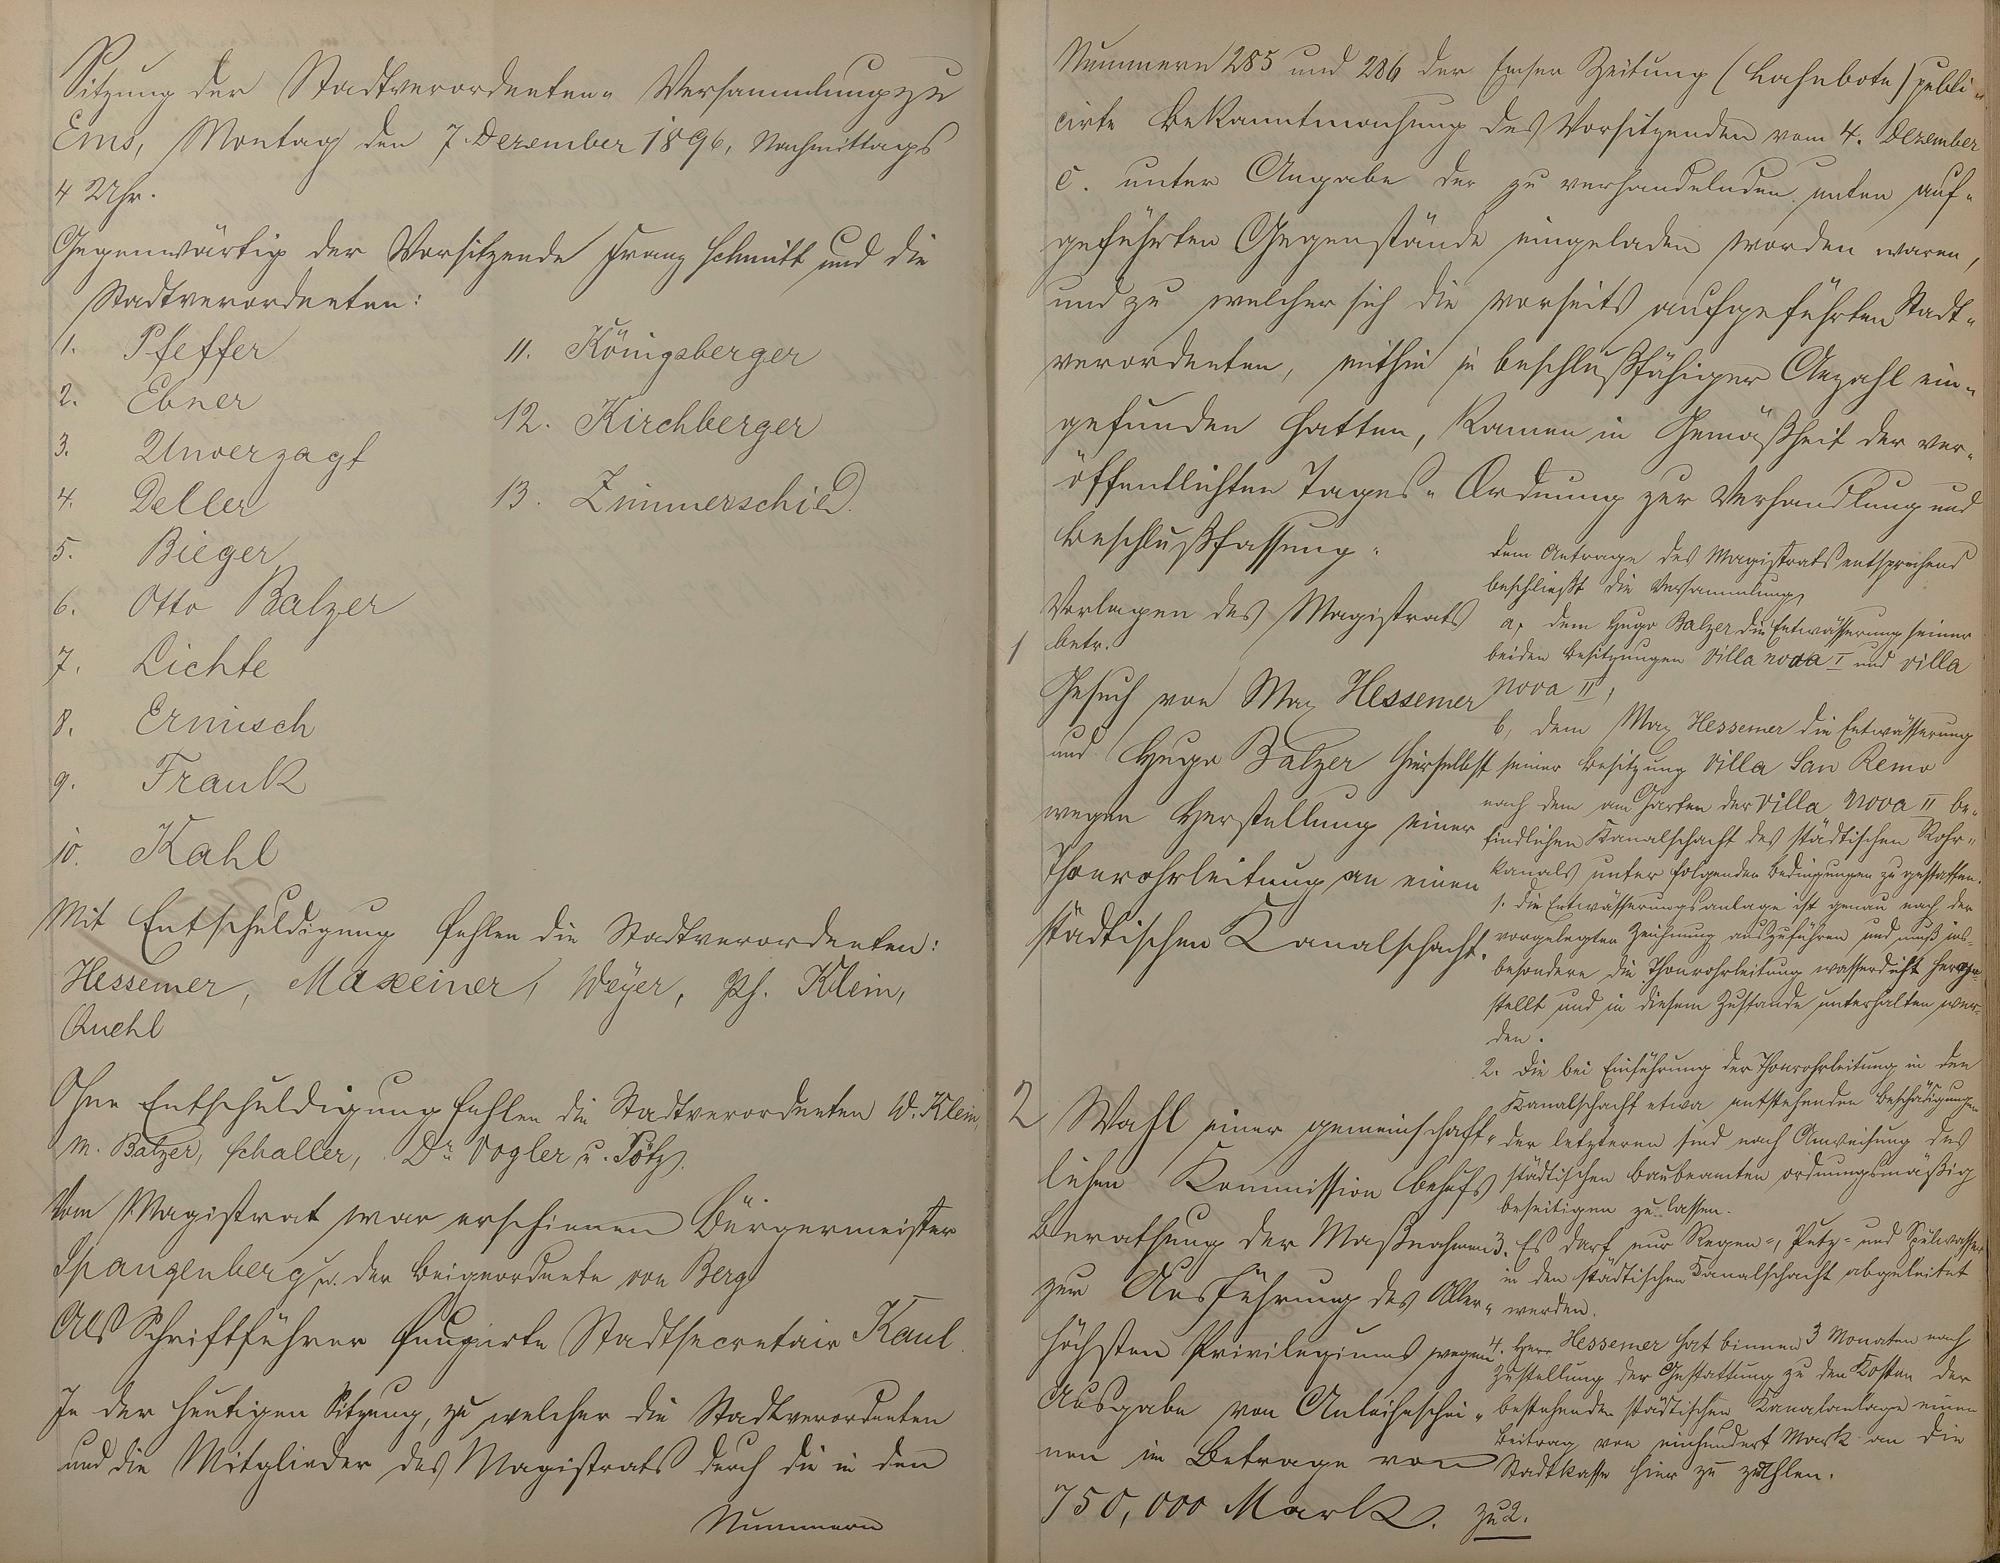 Sitzung der Stadtverordneten-Versammlung zu
Ems, Montag den 7. Dezember 1896, Nachmittags
4 Uhr.
Gegenwärtig der Vorsitzende Franz Schmitt und die
Stadtverordneten:
1. Pfeffer
2. Ebner
3. Unverzagt
4. Deller
5. Bieger
6. Otto Balzer
7. Lichte
8. Ermisch
9. Frank
10. Kahl
11. Königsberger
12. Kirchberger
13. Zimmerschied.
Mit Entschuldigung fehlen die Stadtverordneten:
Hessemer, Maxeiner, Weyer, Ph. Klein,
Quehl
Ohne Entschuldigung fehlen die Stadtverordneten W. Klein,
M. Balzer, Schaller, Dr. Vogler u. Pötz.
Vom Magistrat war erschienen Bürgermeister
Spangenberg u. der Beigeordnete von Berg
Als Schriftführer fungirte Stadtsecretair Kaul.
In der heutigen Sitzung, zu welcher die Stadtverordneten
und die Mitglieder des Magistrats durch die in den
Nummern
Nummern 285 und 286 der Emser Zeitung (Lahnbote) publi-
cirte Bekanntmachung des Vorsitzenden vom 4. Dezember
c. unter Angabe der zu verhandelnden unten auf-
geführten Gegenstände eingeladen worden waren,
und zu welcher sich die vorseits aufgeführten Stadt-
verordneten, mithin in beschlußfähiger Anzahl ein-
gefunden hatten, kamen in Gemäßheit der ver-
öffentlichten Tages-Ordnung zur Verhandlung und
Beschlußfassung.
Vorlagen des Magistrats
betr.
1
Gesuch von Max Hessemer
und Hugo Balzer hierselbst
wegen Herstellung einer
Thonrohrleitung an einen
städtischen Kanalschacht.
Dem Antrage des Magistrats entsprechend
beschließt die Versammlung,
a, dem Hugo Balzer die Entwässerung seiner
beiden Besitzungen Villa nova I und Villa
Nova II,
b, dem Max Hessemer die Entwässerung
seiner Besitzung Villa San Remo
nach dem am Garten der Villa Nova II be-
findlichen Kanalschacht des städtischen Rohr-
kanals unter folgenden Bedingungen zu gestatten.
1. Die Entwässerungsanlage ist genau nach der
vorgelegten Zeichnung auszuführen und muß ins-
besondere die Thonrohrleitung wasserdicht herge-
stellt und in diesem Zustande unterhalten wer-
den.
2. Die bei Einführung der Thonrohrleitung in den
Kanalschacht etwa entstehenden Beschädigungen
der letzteren sind nach Anweisung des
städtischen Baubeamten ordnungsmäßig
beseitigen zu lassen.
3. Es darf nur Regen-, Putz- und Spülwasser
in den städtischen Kanalschacht abgeleitet
werden.
4. Herr Hessemer hat binnen 3 Monaten nach
Zustellung der Gestattung zu den Kosten der
bestehenden städtischen Kanalanlage einen
Beitrag von einhundert Mark an die
Stadtkasse hier zu zahlen.
2 Wahl einer gemeinschaft-
lichen Kommission behufs
Berathung der Maßnahmen
zur Ausführung des Aller-
höchsten Privilegiums wegen
Ausgabe von Anleihescheinen
nen im Betrage von
750,000 Mark.
zu 2.